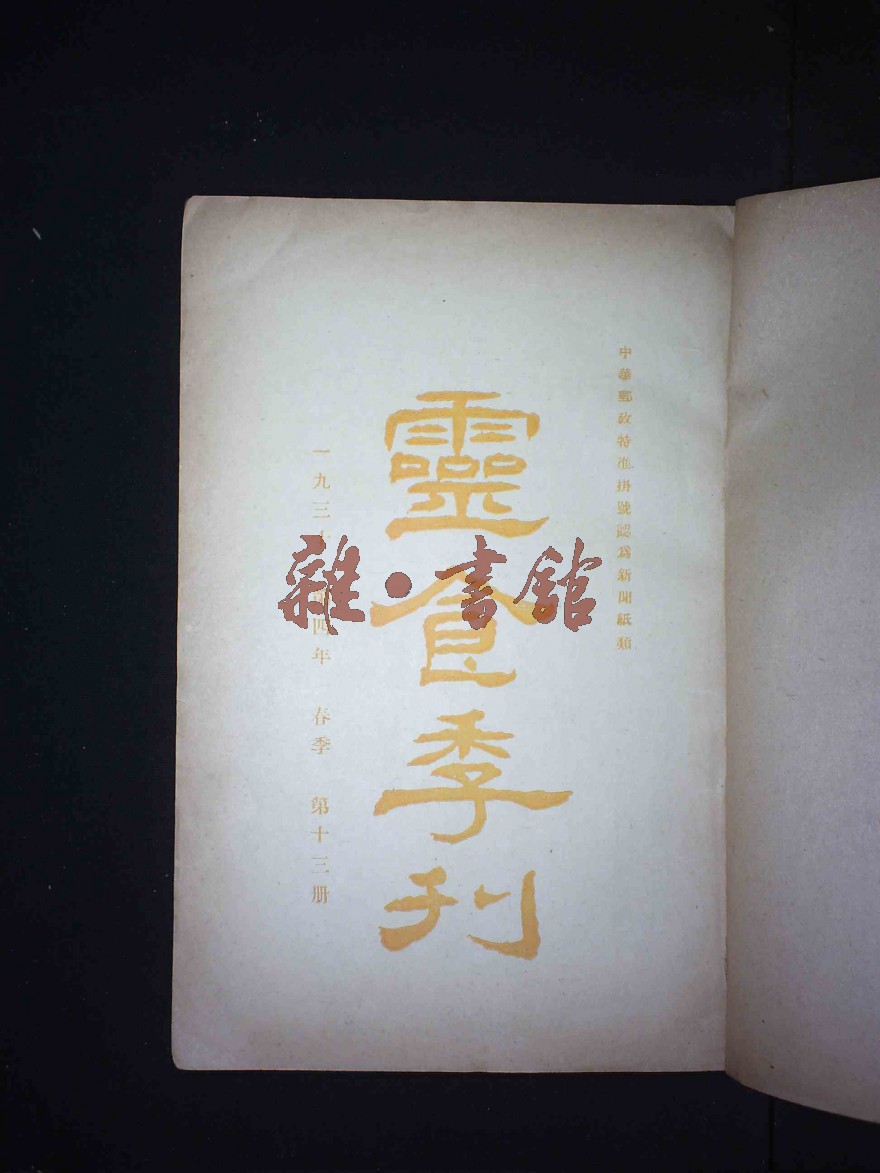 中華郵政特准掛號認爲新聞紙類
靈食季刊
一九三 四年 春季 第十三册
雜·書館